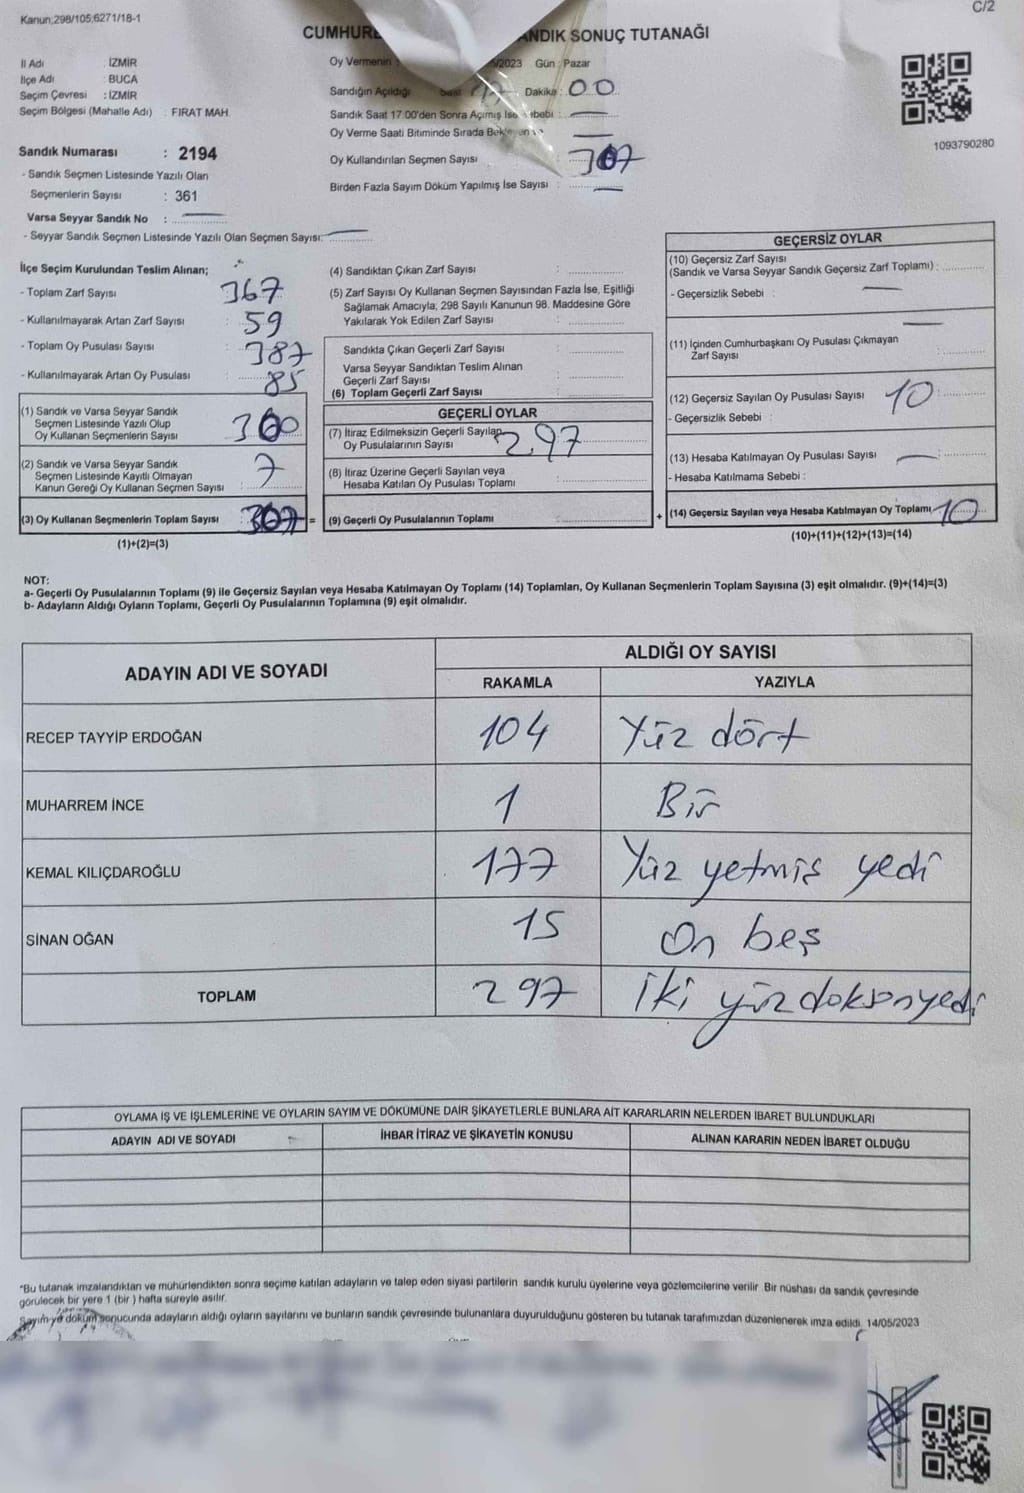 Kanun;298/105;6271/18-1
C/2
SANDIK SONUÇ TUTANAĞI
İl Adı : İZMİR
İlçe Adı : BUCA
Seçim Çevresi : İZMİR
Seçim Bölgesi (Mahalle Adı) : FIRAT MAH.
Oy Vermenin /2023 Gün : Pazar
Sandığın Açıldığı Dakika : 00
Sandık Saat 17:00'den Sonra Açılmış İse
Oy Verme Saati Bitiminde Sırada
Oy Kullandırılan Seçmen Sayısı : 307
Birden Fazla Sayım Döküm Yapılmış İse Sayısı : —
1093790280
Sandık Numarası : 2194
- Sandık Seçmen Listesinde Yazılı Olan
Seçmenlerin Sayısı : 361
Varsa Seyyar Sandık No : —
- Seyyar Sandık Seçmen Listesinde Yazılı Olan Seçmen Sayısı: —
İlçe Seçim Kurulundan Teslim Alınan;
- Toplam Zarf Sayısı : 367
- Kullanılmayarak Artan Zarf Sayısı : 59
- Toplam Oy Pusulası Sayısı : 387
- Kullanılmayarak Artan Oy Pusulası : 85
(1) Sandık ve Varsa Seyyar Sandık
Seçmen Listesinde Yazılı Olup
Oy Kullanan Seçmenlerin Sayısı : 300
(2) Sandık ve Varsa Seyyar Sandık
Seçmen Listesinde Kayıtlı Olmayan
Kanun Gereği Oy Kullanan Seçmen Sayısı : 7
(3) Oy Kullanan Seçmenlerin Toplam Sayısı : 307 =
(1)+(2)=(3)
(4) Sandıktan Çıkan Zarf Sayısı :
(5) Zarf Sayısı Oy Kullanan Seçmen Sayısından Fazla İse, Eşitliği
Sağlamak Amacıyla, 298 Sayılı Kanunun 98. Maddesine Göre
Yakılarak Yok Edilen Zarf Sayısı :
Sandıkta Çıkan Geçerli Zarf Sayısı :
Varsa Seyyar Sandıktan Teslim Alınan
Geçerli Zarf Sayısı :
(6) Toplam Geçerli Zarf Sayısı :
GEÇERLİ OYLAR
(7) İtiraz Edilmeksizin Geçerli Sayılan
Oy Pusulalarının Sayısı : 297
(8) İtiraz Üzerine Geçerli Sayılan veya
Hesaba Katılan Oy Pusulası Toplamı :
(9) Geçerli Oy Pusulalarının Toplamı : +
GEÇERSİZ OYLAR
(10) Geçersiz Zarf Sayısı
(Sandık ve Varsa Seyyar Sandık Geçersiz Zarf Toplamı) :
- Geçersizlik Sebebi : —
(11) İçinden Cumhurbaşkanı Oy Pusulası Çıkmayan
Zarf Sayısı :
(12) Geçersiz Sayılan Oy Pusulası Sayısı : 10
- Geçersizlik Sebebi :
(13) Hesaba Katılmayan Oy Pusulası Sayısı — :
- Hesaba Katılmama Sebebi :
(14) Geçersiz Sayılan veya Hesaba Katılmayan Oy Toplamı 10
(10)+(11)+(12)+(13)=(14)
NOT:
a- Geçerli Oy Pusulalarının Toplamı (9) ile Geçersiz Sayılan veya Hesaba Katılmayan Oy Toplamı (14) Toplamları, Oy Kullanan Seçmenlerin Toplam Sayısına (3) eşit olmalıdır. (9)+(14)=(3)
b- Adayların Aldığı Oyların Toplamı, Geçerli Oy Pusulalarının Toplamına (9) eşit olmalıdır.
ADAYIN ADI VE SOYADI
ALDIĞI OY SAYISI
RAKAMLA YAZIYLA
RECEP TAYYİP ERDOĞAN 104 Yüz dört
MUHARREM İNCE 1 Bir
KEMAL KILIÇDAROĞLU 177 Yüz yetmiş yedi
SİNAN OĞAN 15 On beş
TOPLAM 297 İki yüz doksan yedi
OYLAMA İŞ VE İŞLEMLERİNE VE OYLARIN SAYIM VE DÖKÜMÜNE DAİR ŞİKAYETLERLE BUNLARA AİT KARARLARIN NELERDEN İBARET BULUNDUKLARI
ADAYIN ADI VE SOYADI İHBAR İTİRAZ VE ŞİKAYETİN KONUSU ALINAN KARARIN NEDEN İBARET OLDUĞU
*Bu tutanak imzalandıktan ve mühürlendikten sonra seçime katılan adayların ve talep eden siyasi partilerin sandık kurulu üyelerine veya gözlemcilerine verilir Bir nüshası da sandık çevresinde
görülecek bir yere 1 (bir) hafta süreyle asılır.
Sayım ve döküm sonucunda adayların aldığı oyların sayılarını ve bunların sandık çevresinde bulunanlara duyurulduğunu gösteren bu tutanak tarafımızdan düzenlenerek imza edildi. 14/05/2023